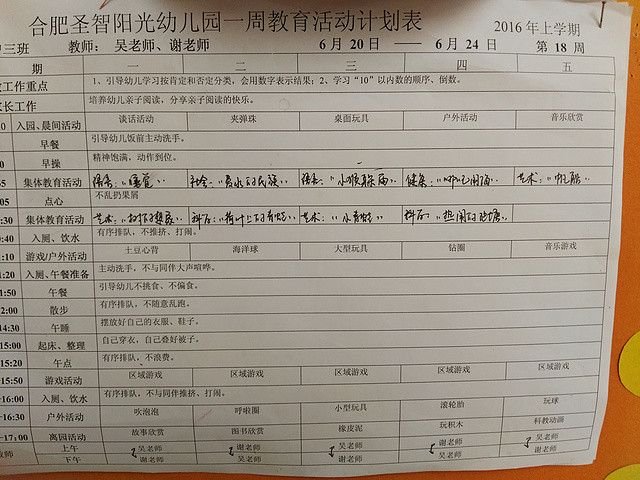 合肥圣智阳光幼儿园一周教育活动计划表
2016 年上学期
三班 教师: 吴老师、谢老师 6 月 20 日 —— 6 月 24 日 第 18 周
期 一 二 三 四 五
工作重点 1、引导幼儿学习按肯定和否定分类，会用数字表示结果；2、学习“10”以内数的顺序、倒数。
长工作 培养幼儿亲子阅读，分享亲子阅读的快乐。
入园、晨间活动 谈话活动 夹弹珠 桌面玩具 户外活动 音乐欣赏
早餐 引导幼儿饭前主动洗手。
早操 精神饱满，动作到位。
集体教育活动 语言：“睡觉” 社会：
点心 不乱扔果屑
:30 集体教育活动 艺术： 科学： 艺术： 科学：
:40 入厕、饮水 有序排队，不推挤、打闹。
:10 游戏/户外活动 土豆心背 海洋球 大型玩具 钻圈 音乐游戏
:20 入厕、午餐准备 主动洗手，不与同伴大声喧哗。
:50 午餐 引导幼儿不挑食、不偏食。
2:00 散步 有序排队，不随意乱跑。
14:30 午睡 摆放好自己的衣服、鞋子。
15:00 起床、整理 自己穿衣，自己叠好被子。
15:20 午点 有序排队，不浪费。
15:50 游戏活动 区域游戏 区域游戏 区域游戏 区域游戏 区域游戏
16:00 入厕、饮水 有序排队，不与同伴推挤、打闹。
16:30 户外活动 吹泡泡 呼啦圈 小型玩具 滚轮胎 玩球
17:00 离园活动 故事欣赏 图书欣赏 橡皮泥 玩积木 科教动画
师 上午 吴老师 谢老师 吴老师 谢老师 吴老师
下午 谢老师 吴老师 谢老师 吴老师 谢老师